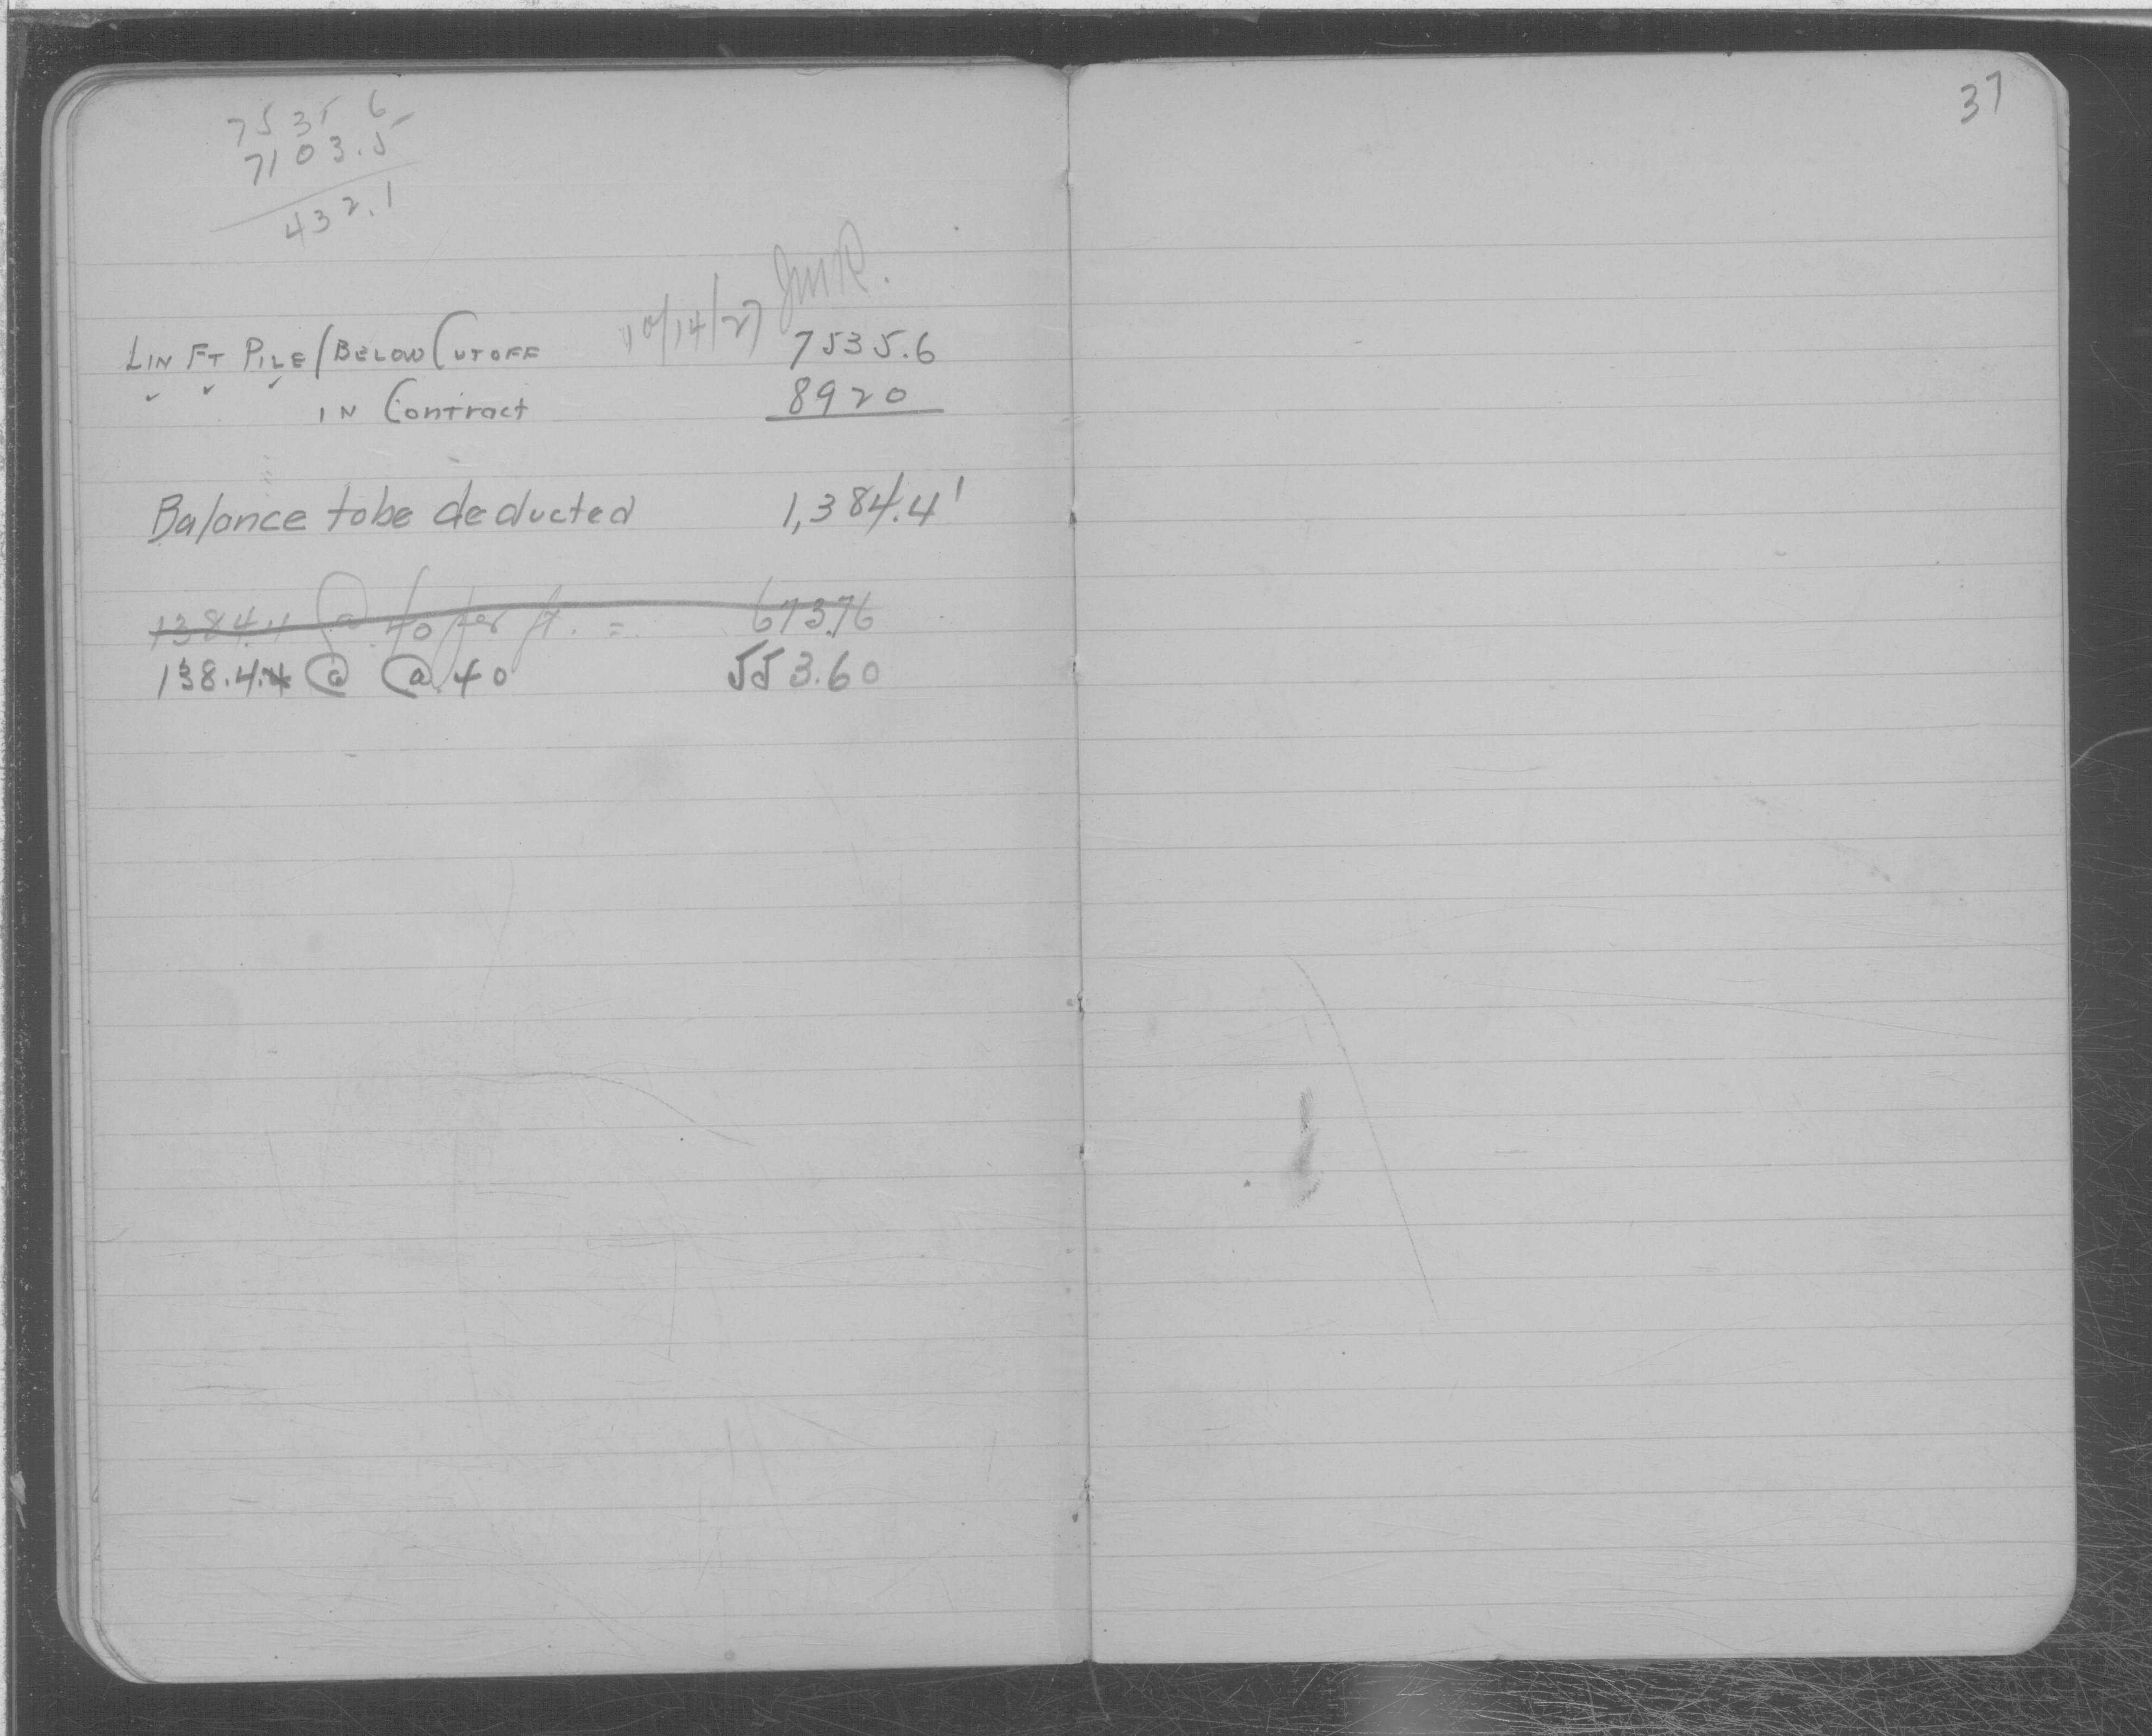 7535 6
7103.5
432.1
10/14/27 JMR.
LIN FT PILE/BELOW CUTOFF 7535.6
✓ ✓ ✓ IN Contract 8920
Balance to be deducted 1,384.4'
1384.4 @ .40 per ft. = 673.76
138.4.4 @ @ .40 553.60
37